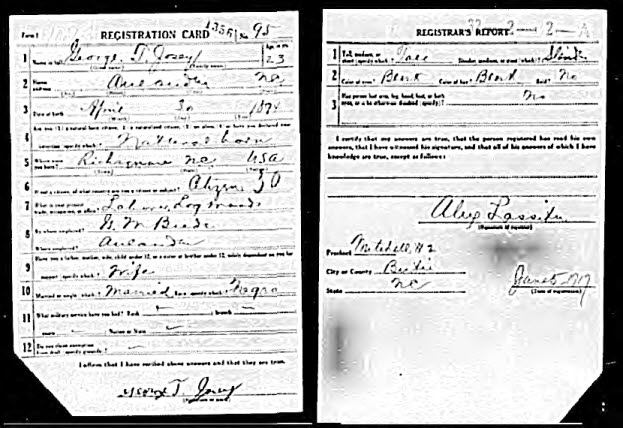 Form 1 REGISTRATION CARD 1356 No. 95
1 Name in full George T. Josey Age, in yrs. 23
(Given name) (Family name)
2 Home address Aulander NC
3 Date of birth April 30
(Month) (Day) (Year)
4 Are you (1) a natural-born citizen, (2) a naturalized citizen, (3) an alien, (4) or have you declared your intention (specify which)? Natural born
5 Where were you born? NC USA
(Town) (State) (Nation)
6 If not a citizen, of what country are you a citizen or subject? Citizen
7 What is your present trade, occupation, or office? Laborer Log woods
8 By whom employed? G. M.
Where employed? Aulander
9 Have you a father, mother, wife, child under 12, or a sister or brother under 12, solely dependent on you for
support (specify which)? Wife
10 Married or single (which)? Married Race (specify which)? Negro
11 What military service have you had? Rank branch
years Nation or State
12 Do you claim exemption
from draft (specify grounds)?
I affirm that I have verified above answers and that they are true.
George T. Josey
(Signature or mark)
REGISTRAR'S REPORT 2 A
1 Tall, medium, or short (specify which)? Tall Slender, medium, or stout (which)?
2 Color of eyes? Black Color of hair? Black Bald? No
3 Has person lost arm, leg, hand, foot, or both
eyes, or is he otherwise disabled (specify)? No
I certify that my answers are true, that the person registered has read his own
answers, that I have witnessed his signature, and that all of his answers of which I have
knowledge are true, except as follows:
Alex Lassiter
(Signature of registrar)
Precinct Mitchell # 2
City or County Bertie
State NC June 5 1917
(Date of registration)